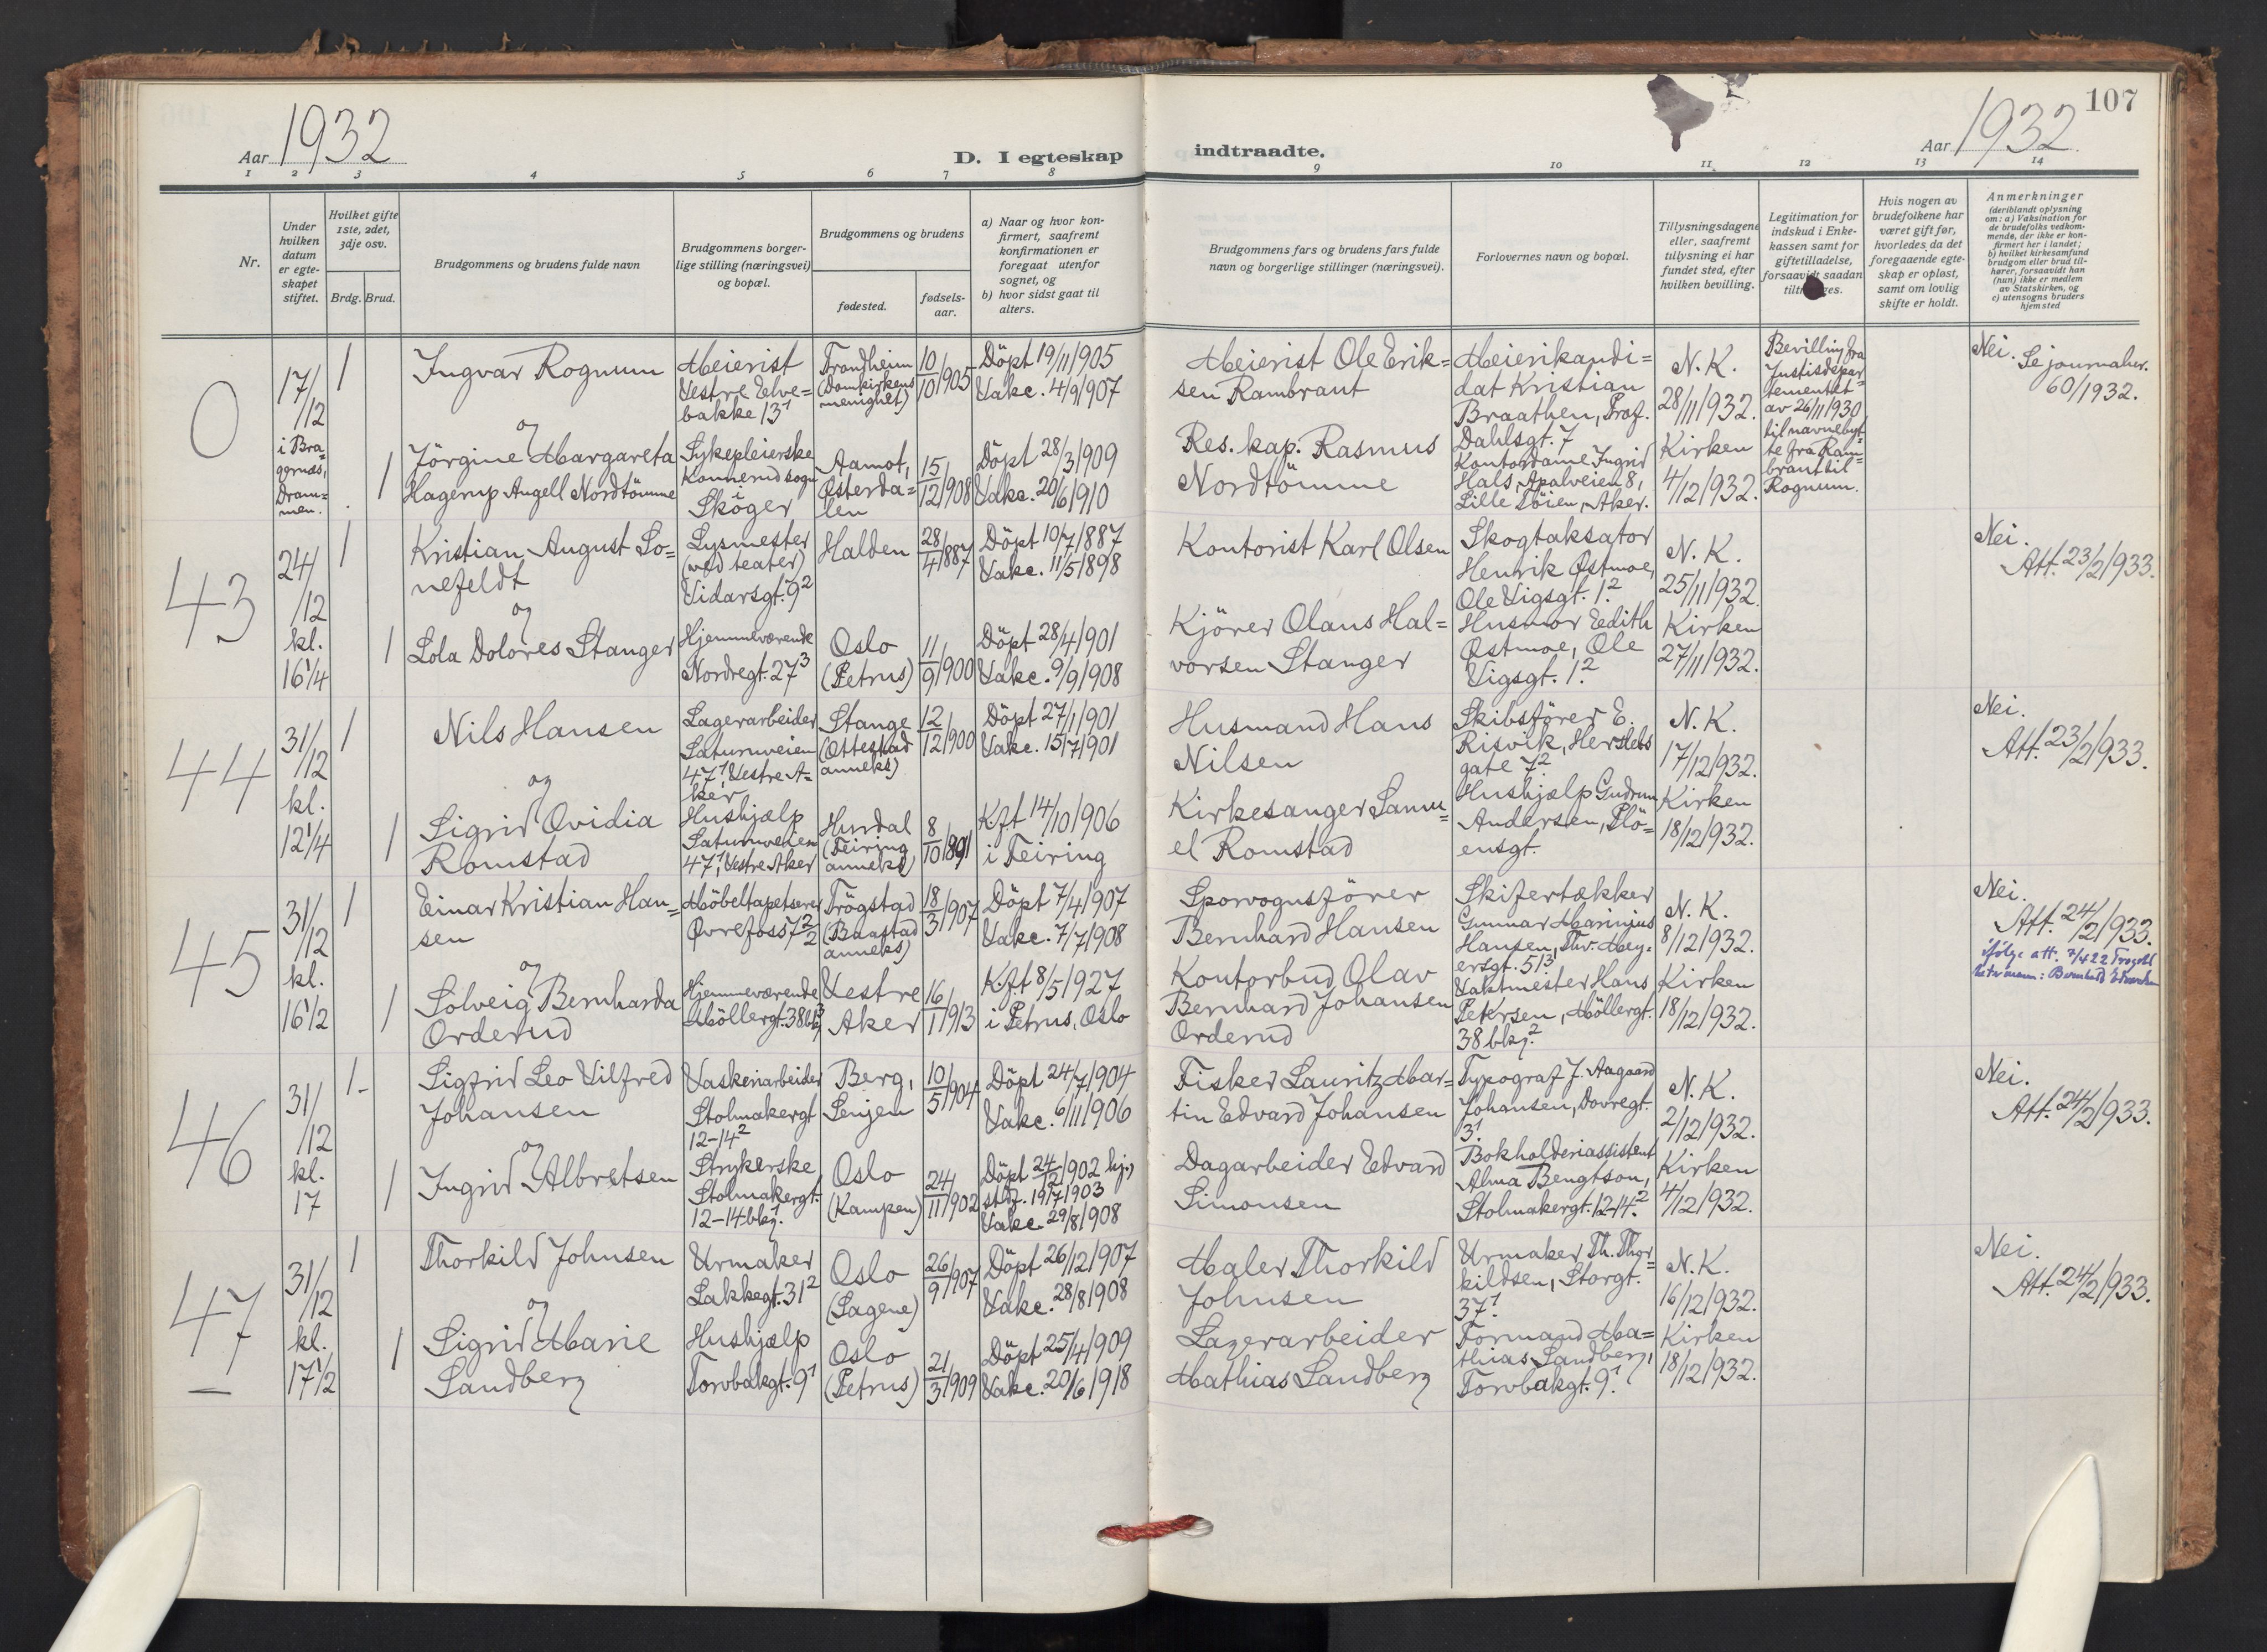 Aar 1932
D. I egteskap
1 2 3 4 5 6 7 8
Nr.
Under hvilken datum er egteskapet stiftet.
Hvilket gifte 1ste, 2det, 3dje osv.
Brdg. Brud.
Brudgommens og brudens fulde navn
Brudgommens borgerlige stilling (næringsvei) og bopæl.
Brudgommens og brudens
fødested.
fødselsaar.
a) Naar og hvor konfirmert, saafremt konfirmationen er foregaat utenfor sognet, og
b) hvor sidst gaat til alters.
indtraadte.
Aar 1932.
107
9 10 11 12 13 14
Brudgommens fars og brudens fars fulde navn og borgerlige stillinger (næringsvei).
Forlovernes navn og bopæl.
Tillysningsdagene eller, saafremt tillysning ei har fundet sted, efter hvilken bevilling.
Legitimation for indskud i Enkekassen samt for giftetilladelse, forsaavidt saadan
Hvis nogen av brudefolkene har været gift før, hvorledes da det foregaaende egteskap er opløst, samt om lovlig skifte er holdt.
Anmerkninger
(deriblandt oplysning om: a) Vaksination for de brudefolks vedkommende, der ikke er konfirmert her i landet;
b) hvilket kirkesamfund brudgom eller brud tilhører, forsaavidt han (hun) ikke er medlem av Statskirken, og
c) utensogns bruders hjemsted
0
17/12
i Bragernæs, Drammen.
1
Ingvar Rognum
Meierist
Vestre Elvebakke 13¹
Trondheim
(Domkirkens menighet)
10/10 1905
Döpt 19/11 1905
Vakc. 4/9 1907
Meierist Ole Eriksen Rambraut
Meierikandidat Kristian
Braathen, Prof.
Dahlsgt. 7
N. K.
28/11 1932.
Bevilling fra
Justisdepartementet
av 26/11 1930
til navnebytte fra Rambraut til
Rognum.
Nei. Se journalnr.
60/1932.
og
1
Jörgine Margareta
Hagerup Angell Nordtömme
Sykepleierske
Konnerud sogn
i
Skoger
Aamot,
Österdalen
15/12 1908
Döpt 28/3 1909
Vakc. 20/6 1910
Res. kap. Rasmus
Nordtömme
Kontordame Ingrid
Hals, Apalveien 8,
Lille Töien, Aker.
Kirken
4/12 1932.
43
24/12
kl.
16 1/4
1
Kristian August Sonefeldt
Lysmester
(ved teater)
Vidarsgt. 9²
Halden
28/4 1887
Döpt 10/7 1887
Vakc. 11/5 1898
Kontorist Karl Olsen
Skogtaksator
Henrik Östmoe,
Ole Vigsgt. 1.²
N. K.
25/11 1932.
Nei.
Att. 23/2 1933.
og
1
Lola Dolores Stanger
Hjemmeværende
Nordregt. 27³
Oslo
(Petrus)
11/9 1900
Döpt 28/4 1901
Vakc. 9/9 1908
Kjörer Olaus Halvorsen Stanger
Husmor Edith
Östmoe, Ole
Vigsgt. 1.²
Kirken
27/11 1932.
44
31/12
kl.
12 1/4
1
Nils Hansen
Lagerarbeider
Saturnveien
47¹, Vestre Aker
Stange
(Ottestad
anneks)
12/12 1900
Döpt 27/1 1901
Vakc. 15/7 1901
Husmand Hans
Nilsen
Skibsförer E.
Risvik, Herslebs
gate 7².
N. K.
17/12 1932.
Nei.
Att. 23/2 1933.
og
1
Sigrid Ovidia
Romstad
Hushjælp
Saturnveien
47¹, Vestre Aker
Hurdal
(Feiring
anneks)
8/10 1891
Kft 14/10 1906
i Feiring
Kirkesanger Samuel Romstad
Hushjælp Gudrun
Andersen, Plöensgt.
Kirken
18/12 1932.
45
31/12
kl.
16 1/2
1
Einar Kristian Hansen
Möbeltapetserer
Övrefoss 7
Trögstad
(Baastad
anneks)
18/3 1907
Döpt 7/4 1907
Vakc. 7/7 1908
Sporvognsförer
Bernhard Hansen
Skifertækker
Gunnar Marinius
Hansen, Thv. Meyersgt. 51³
N. K.
8/12 1932.
Nei.
Att. 24/2 1933.
ifölge att.
og
1
Solveig Bernharda
Orderud
Hjemmeværende
Möllergt. 38
Vestre
Aker
16/1 1913
Kft 8/5 1927
i Petrus, Oslo
Kontorbud Olav
Bernhard Johansen
Orderud
Vaktmester Hans
Petersen, Möllergt.
38 bkg.²
Kirken
18/12 1932.
46
31/12
kl.
17
1
Sigfrid Leo Vilfred
Johansen
Vaskeriarbeider
Stolmakergt
12-14²
Berg,
Senjen
10/5 1904
Döpt 24/7 1904
Vakc. 6/11 1906
Fisker Lauritz Martin Edvard Johansen
Typograf J. Aagaard
Johansen, Dovregt.
3¹.
N. K.
2/12 1932.
Nei.
Att. 24/2 1933.
og
1
Ingrid Albretsen
Strykerske
Stolmakergt.
12-14 bkg.¹
Oslo
(Kampen)
24/11 1902
Döpt 24/12 1902 hj.,
stadf. 19/7 1903
Vakc. 29/8 1908
Dagarbeider Edvard
Simonsen
Bokholderiassistent
Alma Bengtson,
Stolmakergt. 12-14.²
Kirken
4/12 1932.
47
31/12
kl.
17 1/2
1
Thorkild Johnsen
Urmaker
Lakkegt. 31²
Oslo
(Sagene)
26/9 1907
Döpt 26/12 1907
Vakc. 28/8 1908
Maler Thorkild
Johnsen
Urmaker Th. Thorkildsen, Storgt.
37¹.
N. K.
16/12 1932.
Nei.
Att. 24/2 1933.
og
1
Sigrid Marie
Sandberg
Hushjælp
Torvbakgt. 9¹
Oslo
(Petrus)
21/3 1909
Döpt 25/4 1909
Vakc. 20/6 1918
Lagerarbeider
Mathias Sandberg
Formand Mathias Sandberg,
Torvbakgt. 9¹.
Kirken
18/12 1932.